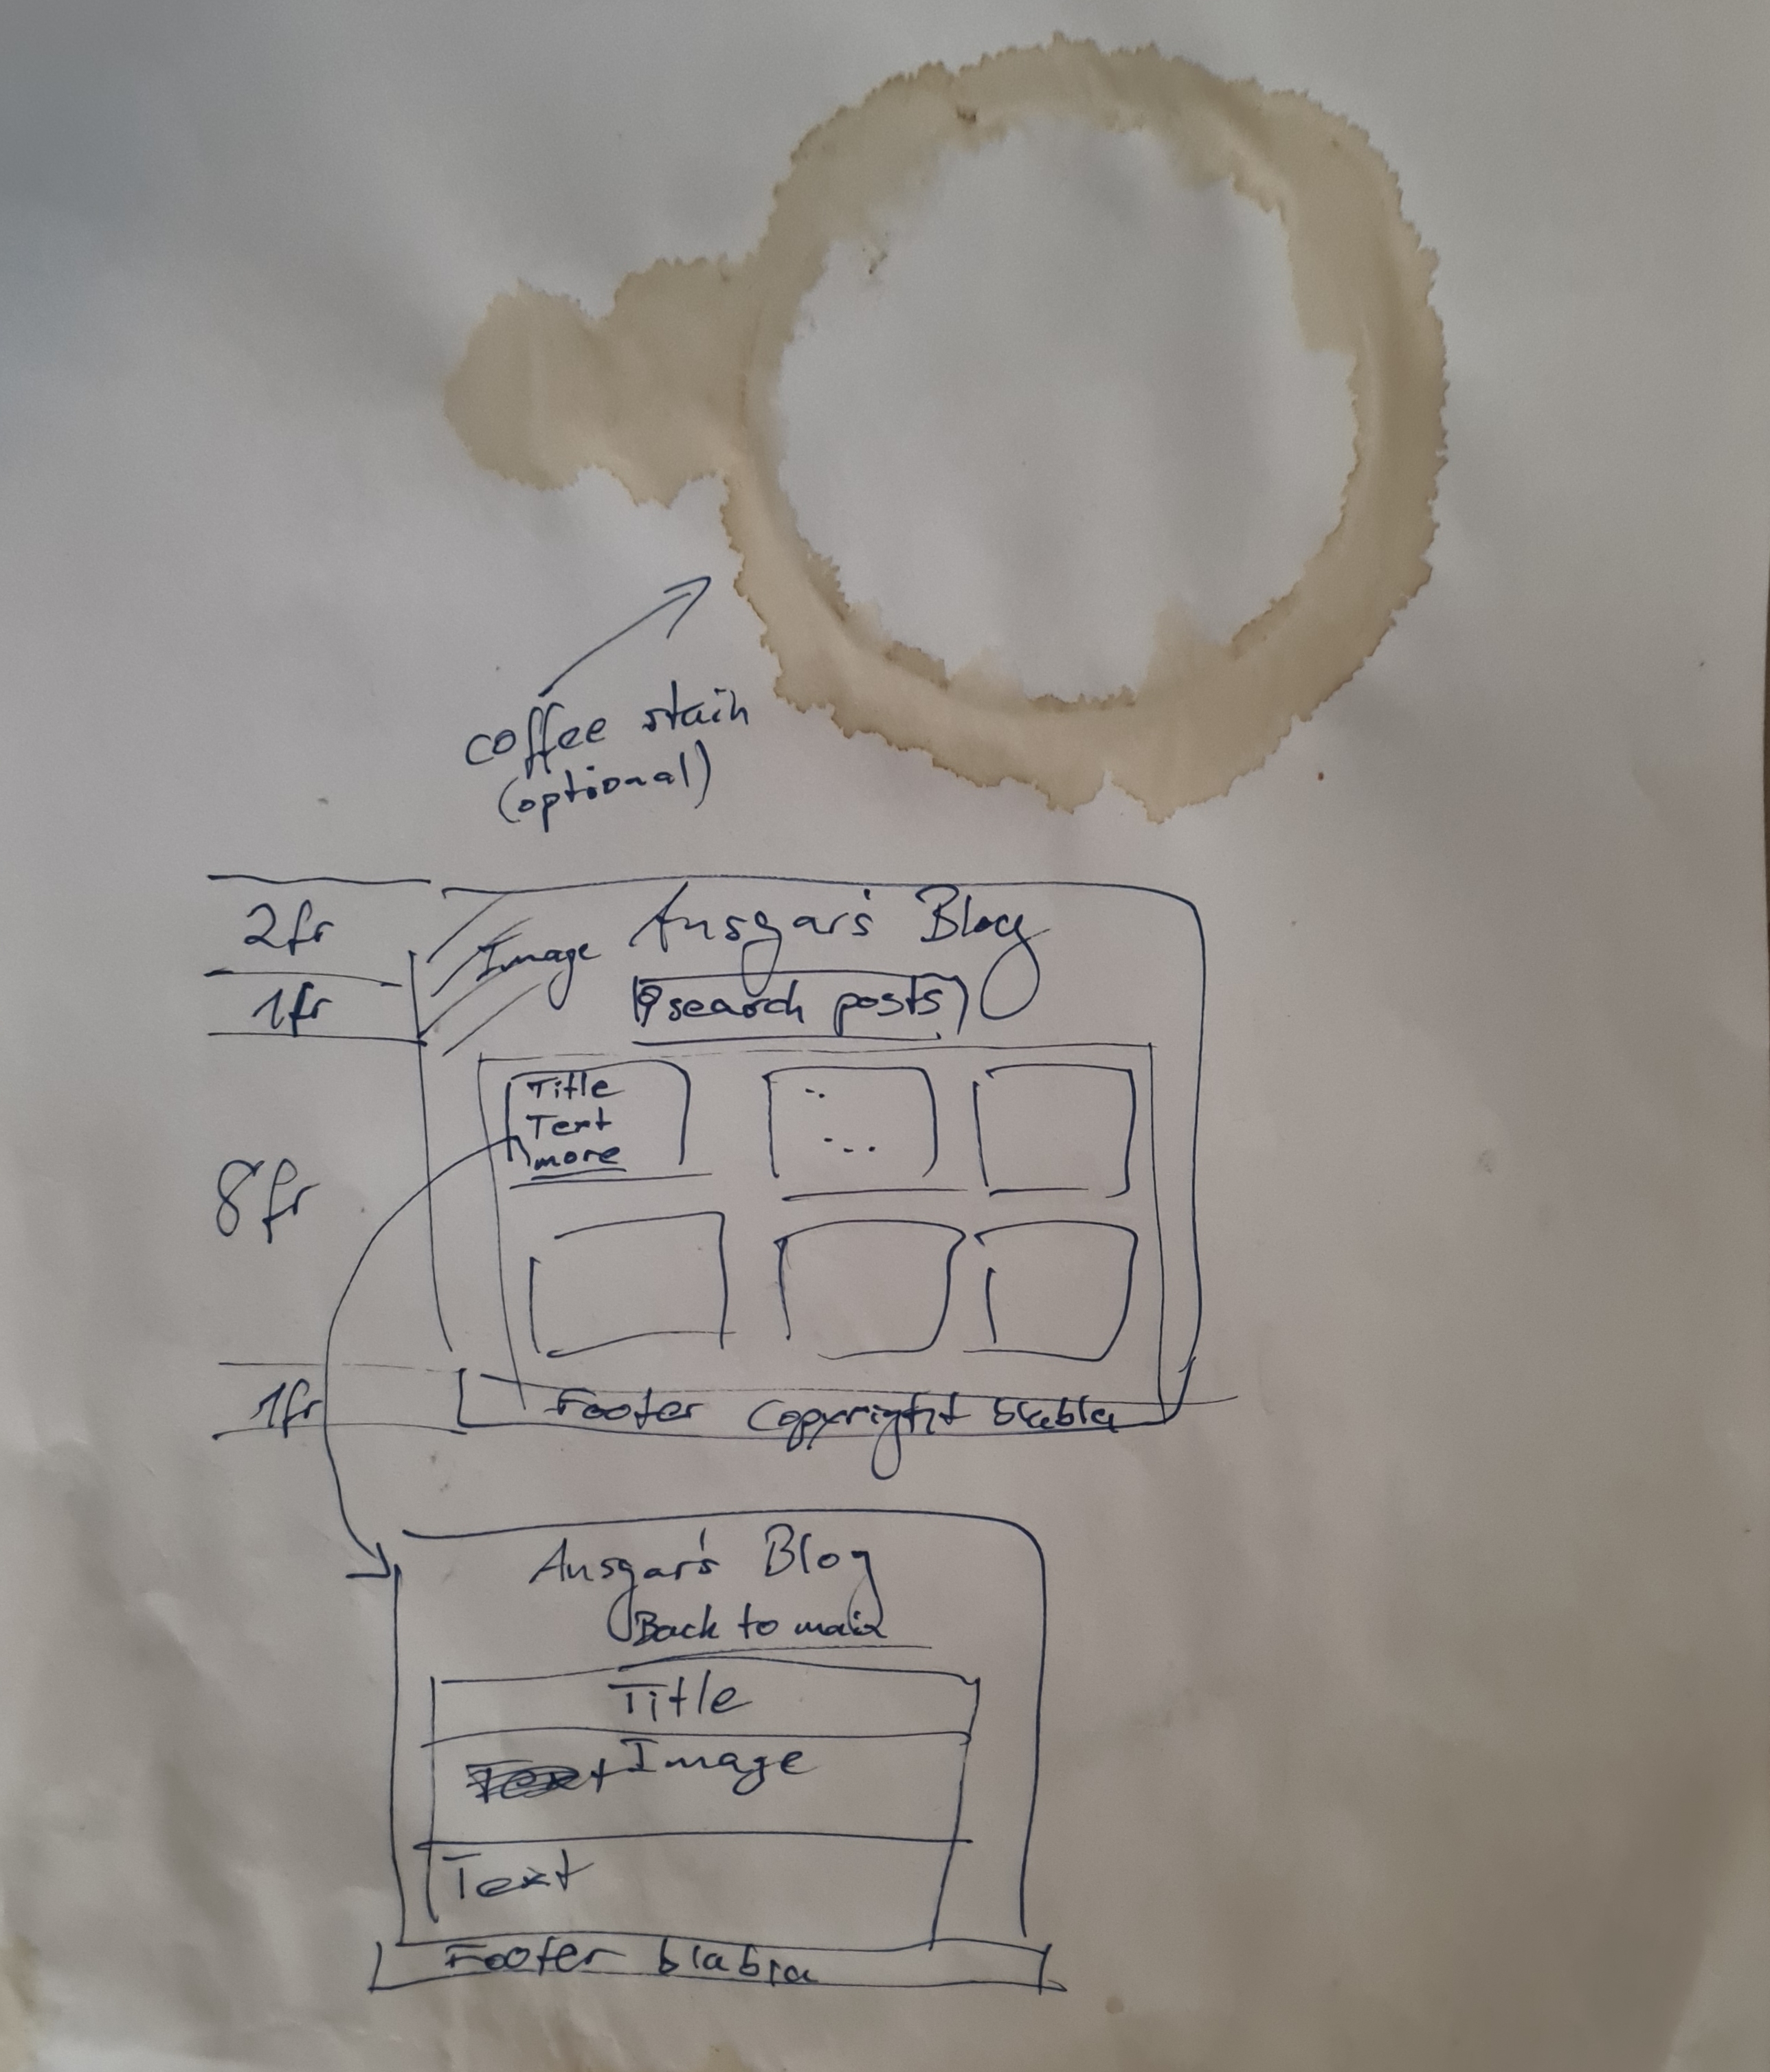 coffee stain
(optional)
2fr
Image Ansgar's Blog
1fr
search posts
Title
Text
more
8fr
1fr
Footer Copyright blabla
Ansgar's Blog
Back to main
Title
Image
Text
Footer blabla